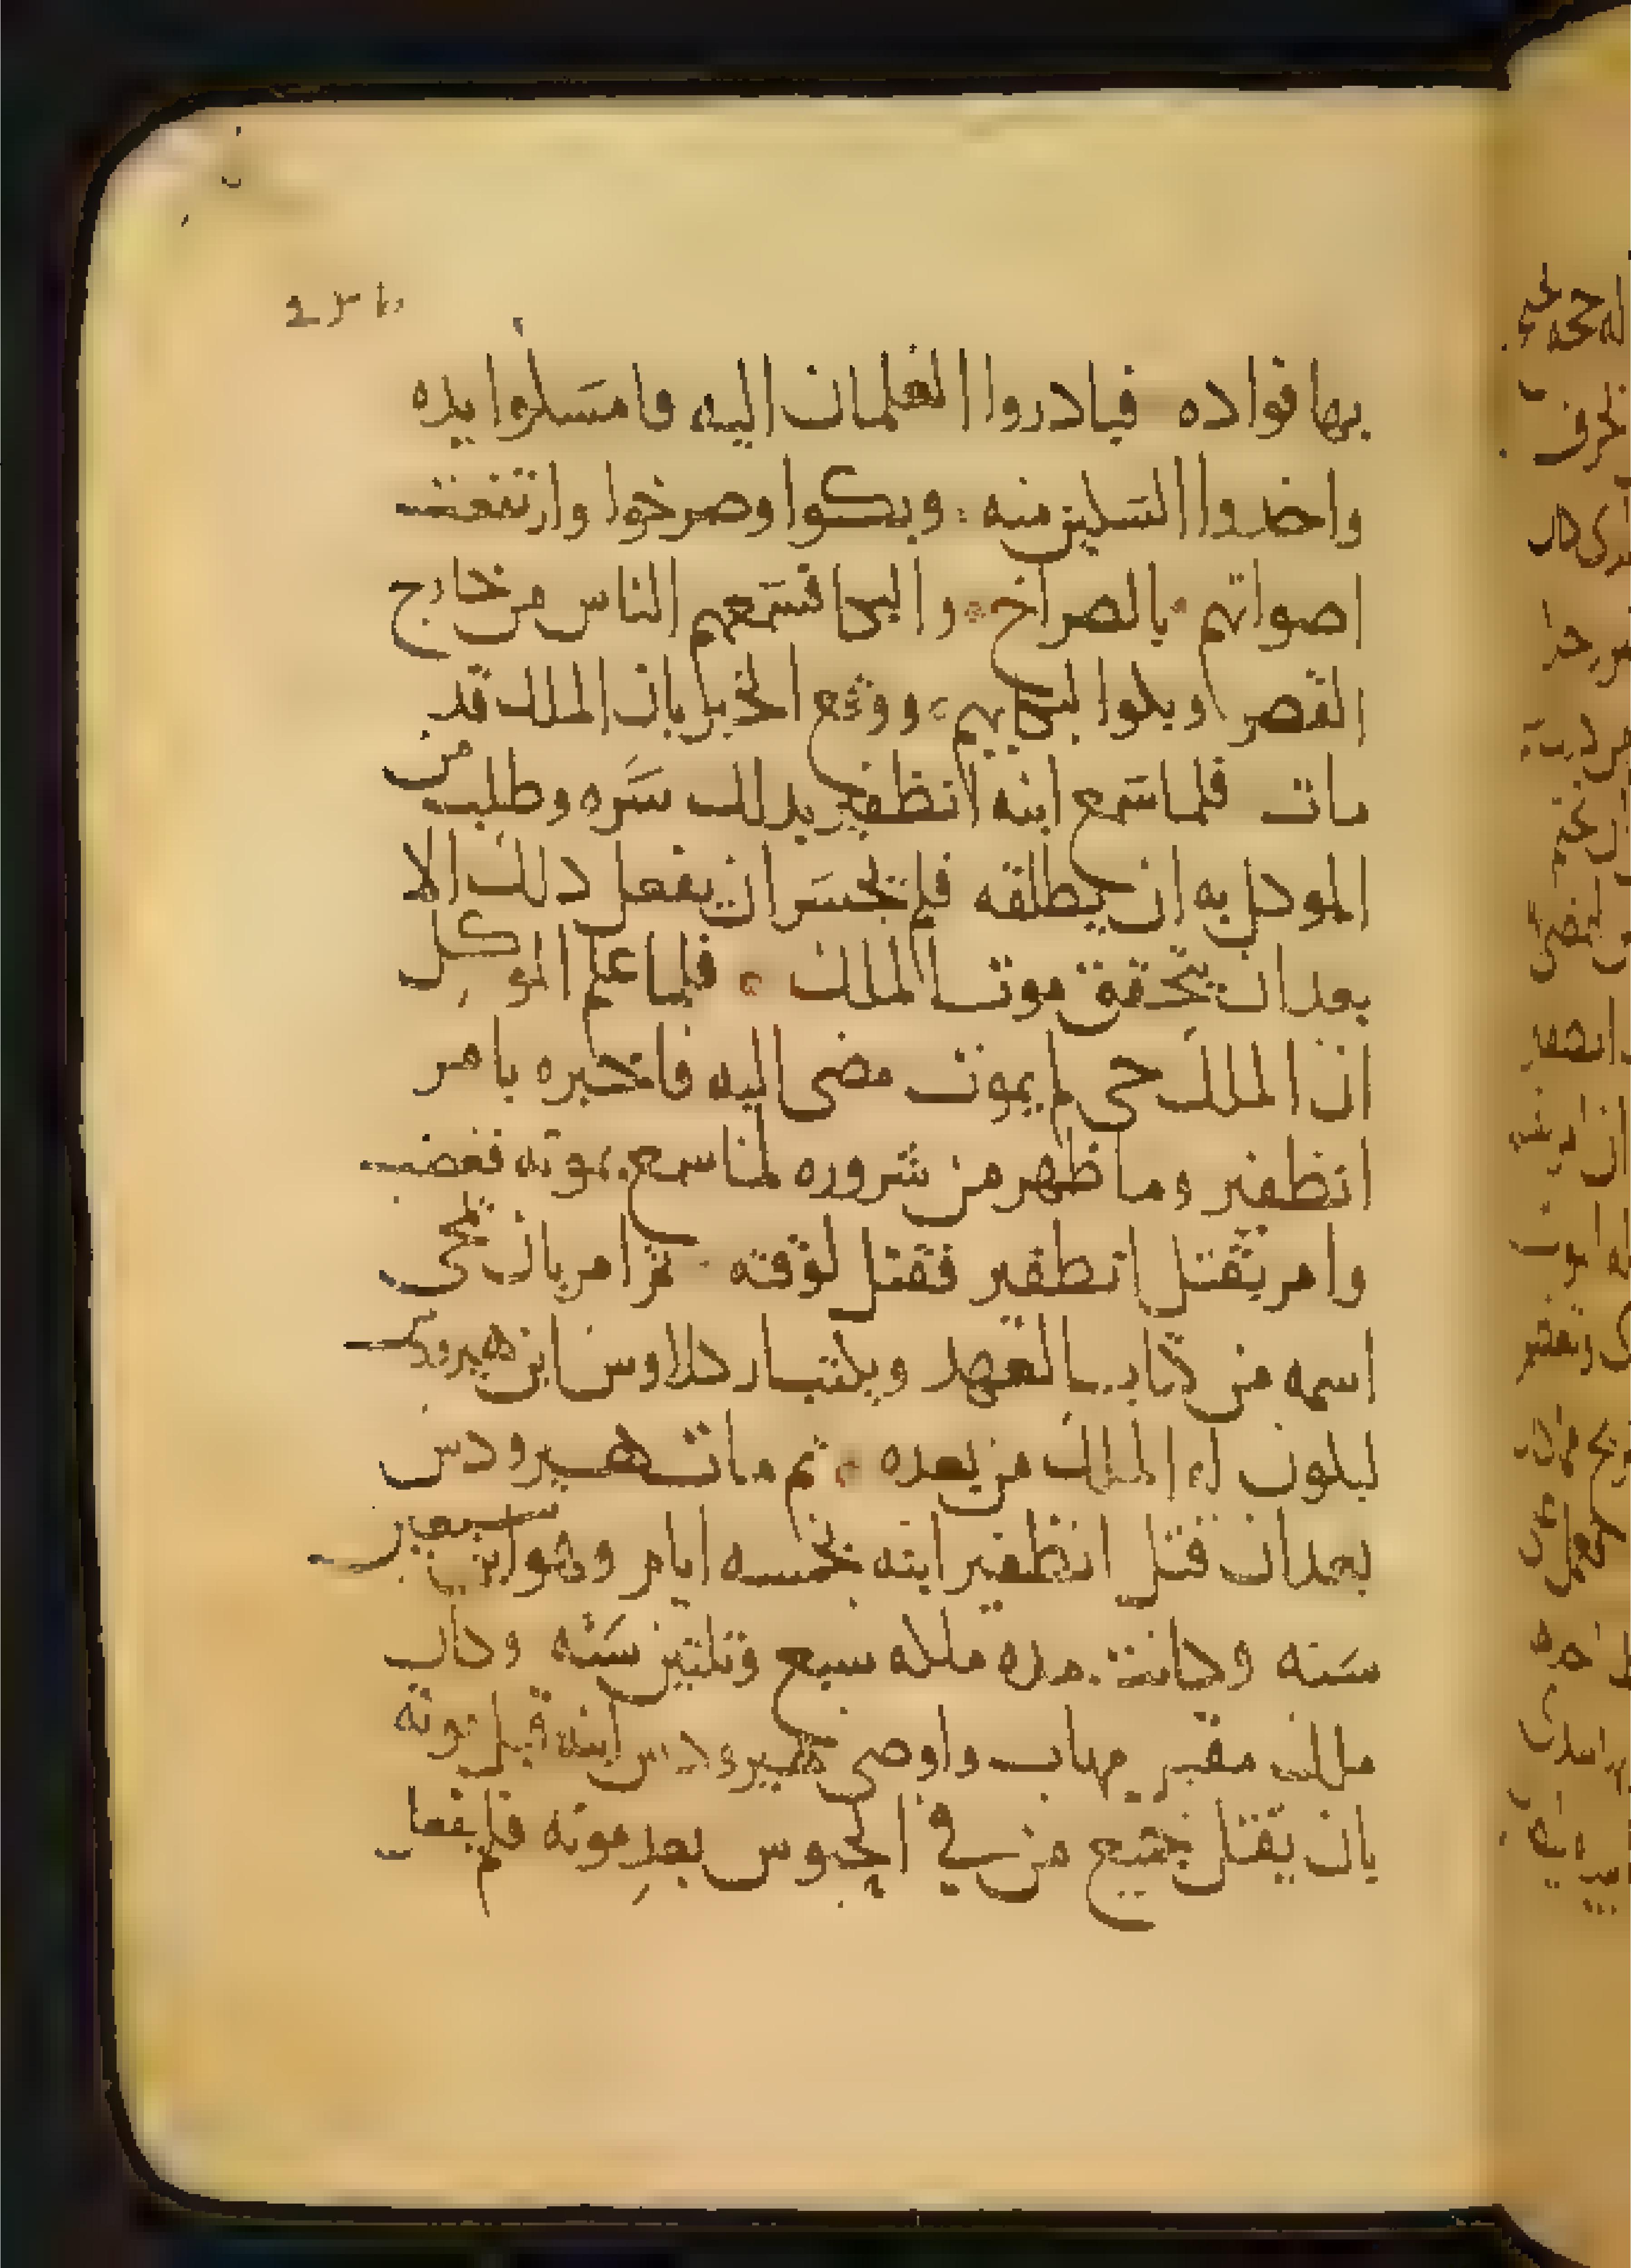 بها فواده فبادروا الغلمان اليه فامسكوا يده
واخدوا السكين منه : وبكوا وصرخوا وارتفعت
اصواتهم بالصراخ والبكا فسمعهم الناس من خارج
القصر وبكوا لبكايهم ووقع الخبر بان الملك قد
مات فلما سمع ابنه انظفير بدلك سره وطلب من
الموكل به ان يطلقه فلم يجسر ان يفعل دلك الا
بعد ان يتحقق موت الملك فلما علم الموكل
ان الملك حى لم يموت مضى اليه فاخبره بامر
انظفير وما ظهر من سروره لما سمع بموته فغضب
وامر بقتل انطفير فقتل لوقته ثم امر بان يمحى
اسمه من كتاب العهد ويكتب اركلاوس ابن هيرودس
ليكون له الملك من بعده ثم مات هيرودس
بعد ان قتل انظفير ابنه بخمسه ايام وهو ابن سبعين
سنه وكانت مده ملكه سبع وتلتين سنه وكان
ملك مهاب واوصى هيرودس ابنه قبل موته
بان يقتل جميع من في الحبوس بعد موته فلم يفعل